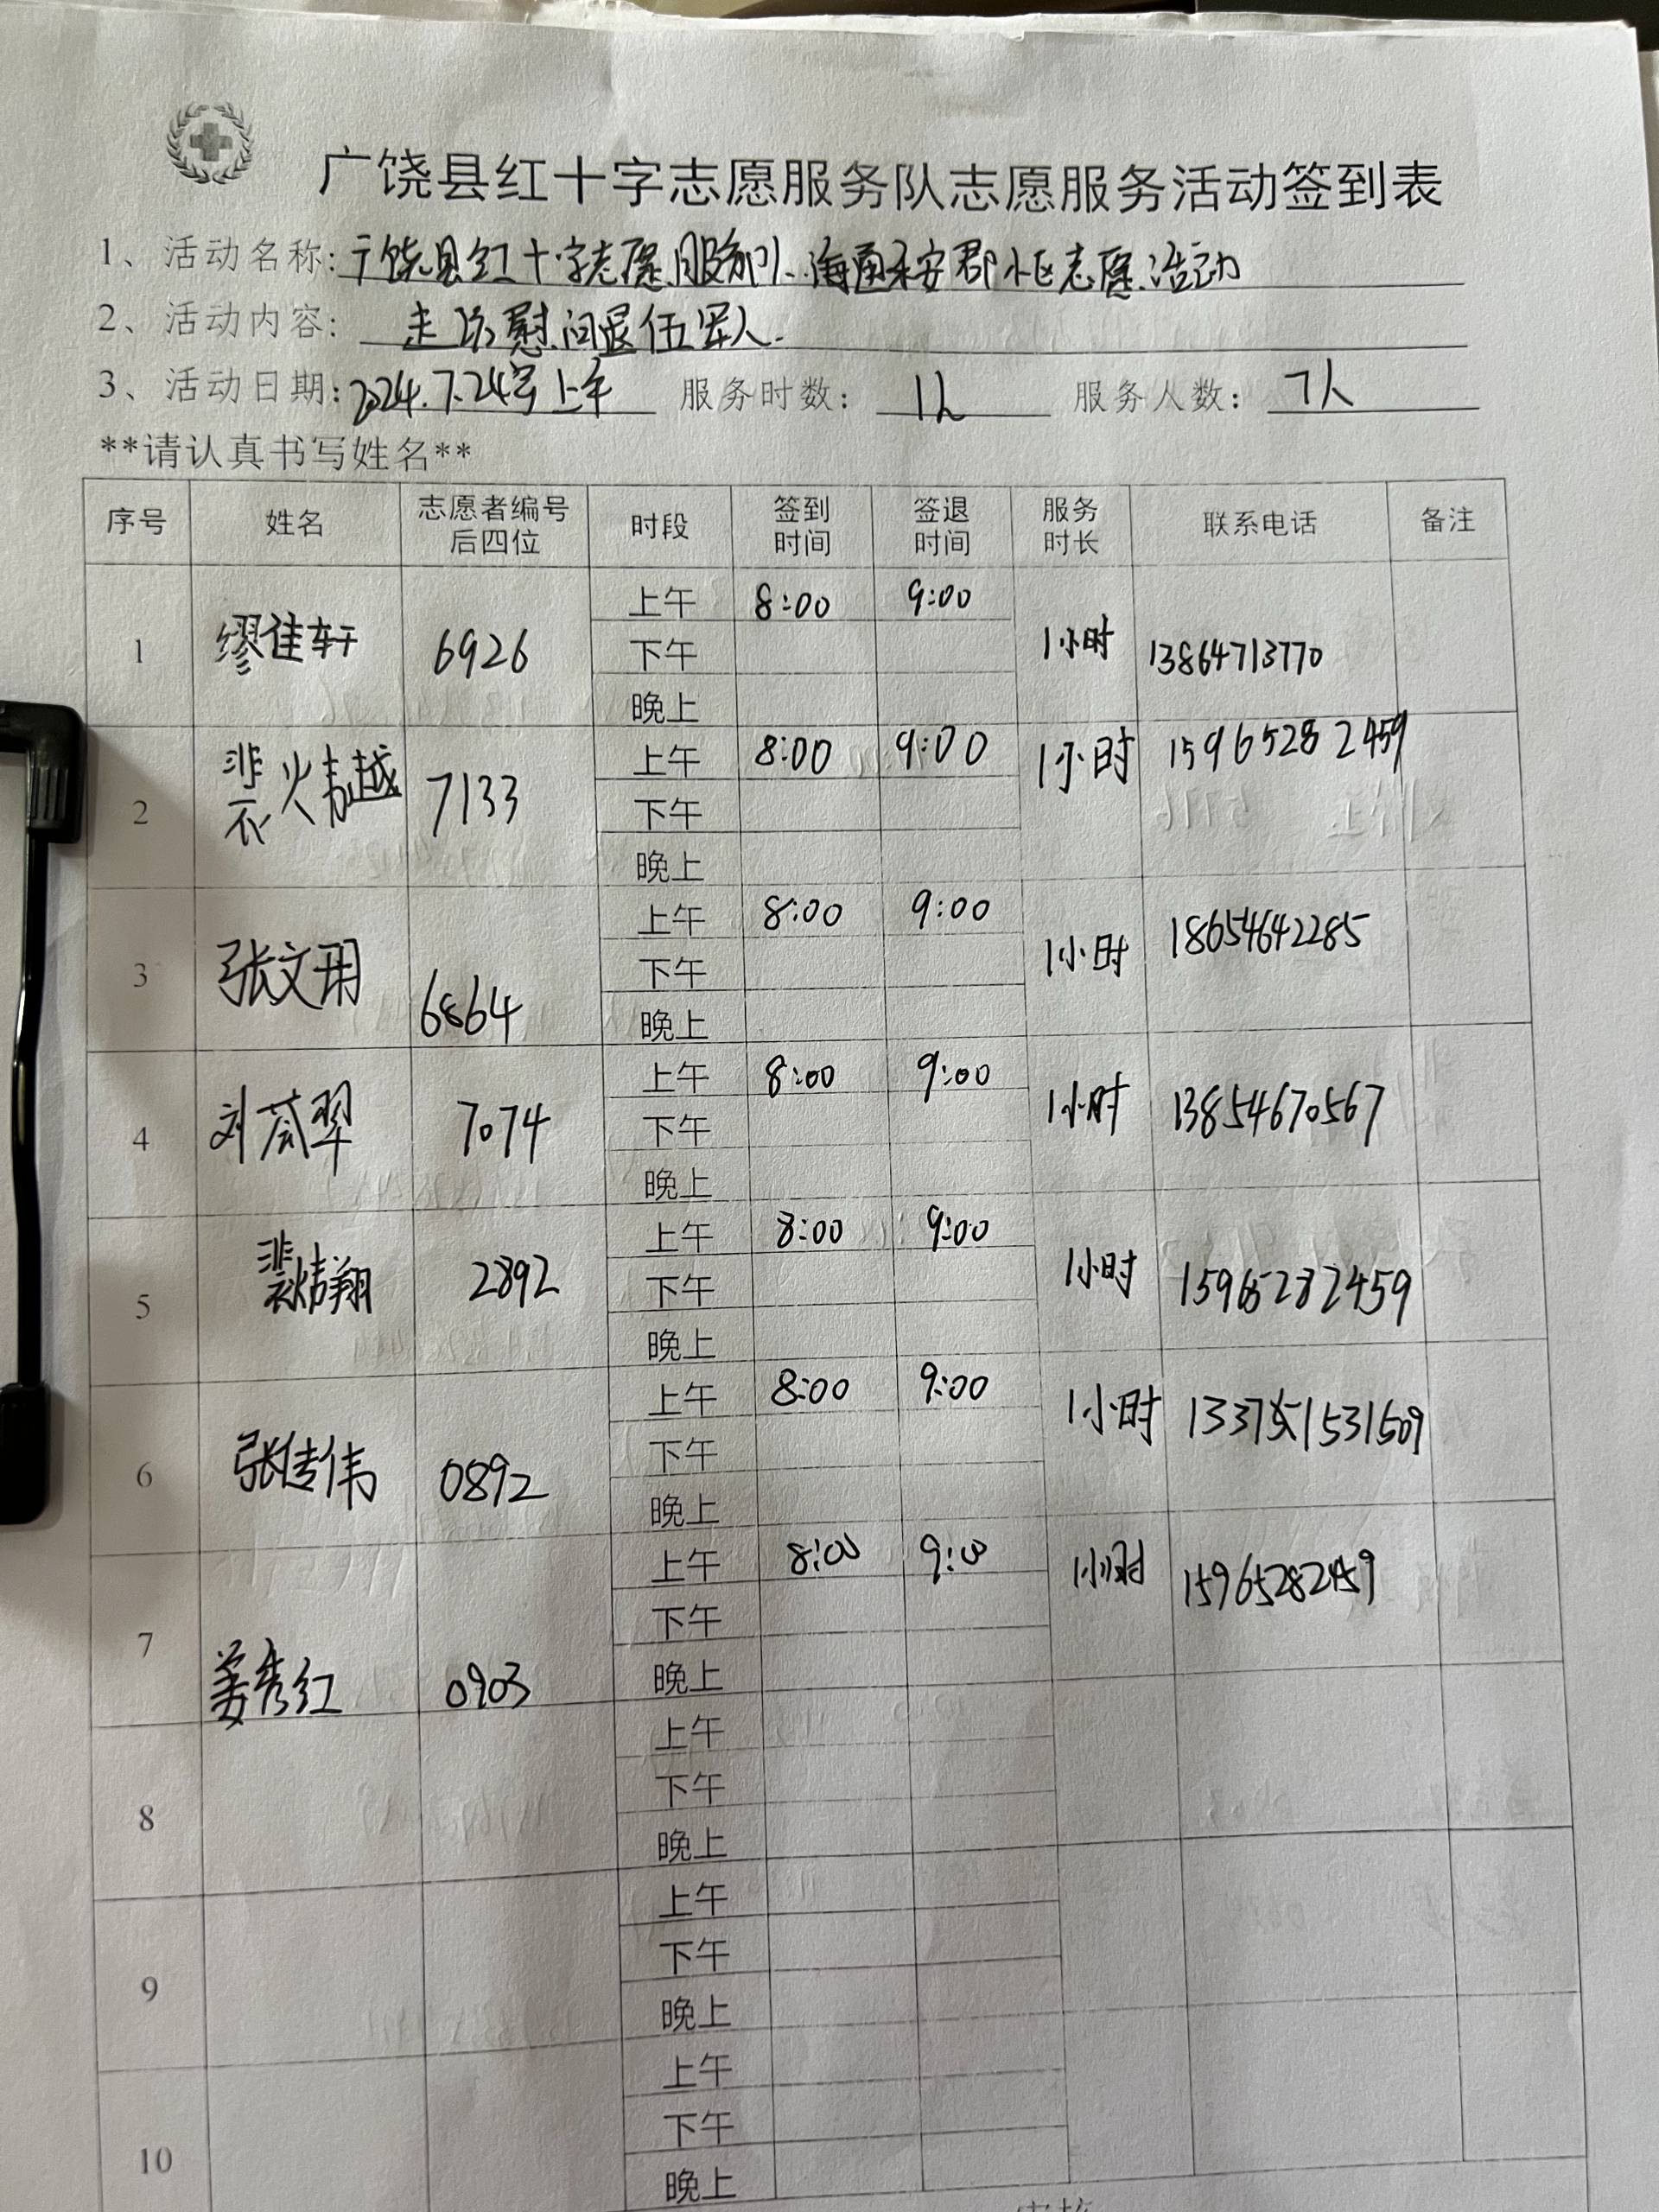 广饶县红十字志愿服务队志愿服务活动签到表
1、活动名称:广饶县红十字志愿服务队海通永安郡小区志愿活动
2、活动内容: 走访慰问退伍军人.
3、活动日期:2024.7.24号上午 服务时数: 1h 服务人数: 7人
**请认真书写姓名**
序号 姓名 志愿者编号后四位 时段 签到时间 签退时间 服务时长 联系电话 备注
1 缪佳轩 6926 上午 8:00 9:00 1小时 13864713770
下午
晚上
2 裴焅越 7133 上午 8:00 9:00 1小时 15965282459
下午
晚上
3 张文玥 6864 上午 8:00 9:00 1小时 18654642285
下午
晚上
4 刘芮翠 7074 上午 8:00 9:00 1小时 13854670567
下午
晚上
5 翔 2892 上午 8:00 9:00 1小时 15965282459
下午
晚上
6 张传伟 0892 上午 8:00 9:00 1小时
下午
晚上
7 姜秀红 0903 上午 8:00 9:00 1小时 15965282459
下午
晚上
8 上午
下午
晚上
9 上午
下午
晚上
10 上午
下午
晚上